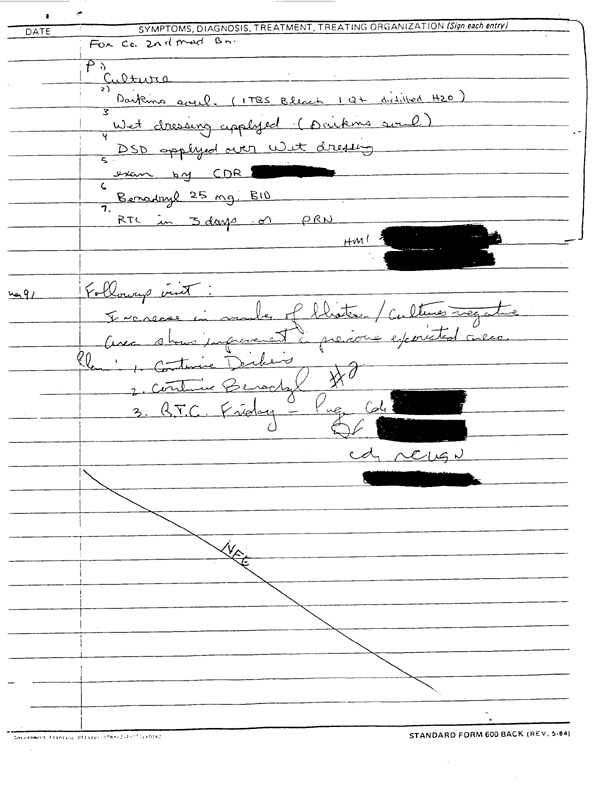 DATE
SYMPTOMS, DIAGNOSIS, TREATMENT, TREATING ORGANIZATION (Sign each entry)
For Co. 2nd Med Bn.
P 1)
Culture
2)
Daikins soul. (1 TBS Bleach 1 Qt distilled H2O)
3
Wet dressing applyed (Daikins soul)
4
DSD applyed over Wet dressing
5
exam by CDR
6
Benadryl 25 mg. BID
7.
RTC in 3 days or PRN
HM1
91
Followup visit:
Increase in number of / Cultures negative
area shows improvement in previous excoriated areas.
Plan: 1. Continue Daikins
2. Continue Benadryl #2
3. R.T.C. Friday - Page Cdr
NFE
STANDARD FORM 600 BACK (REV. 5-84)